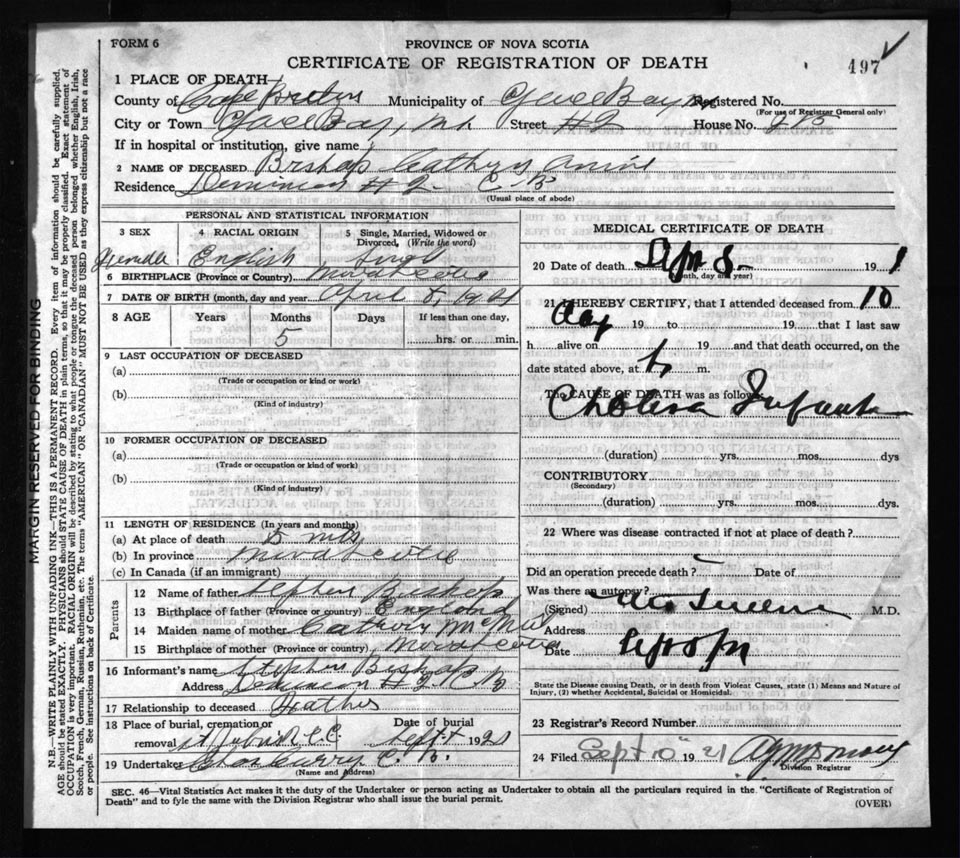 FORM 6
PROVINCE OF NOVA SCOTIA
CERTIFICATE OF REGISTRATION OF DEATH
197
1 PLACE OF DEATH
County of Cape Breton Municipality of Glace Bay Registered No.
(For use of Registrar General only)
City or Town Glace Bay, Street #2 House No.
If in hospital or institution, give name
2 NAME OF DECEASED Bishop Cathryn Annie
Residence Dominion #2 C.B.
(Usual place of abode)
PERSONAL AND STATISTICAL INFORMATION
3 SEX
4 RACIAL ORIGIN
5 Single, Married, Widowed or Divorced, (Write the word)
Female English Single
6 BIRTHPLACE (Province or Country) Nova Scotia
7 DATE OF BIRTH (month, day and year) April 8, 1921
8 AGE Years Months Days If less than one day,
5 hrs. or min.
9 LAST OCCUPATION OF DECEASED
(a)
(Trade or occupation or kind or work)
(b)
(Kind of industry)
10 FORMER OCCUPATION OF DECEASED
(a)
(Trade or occupation or kind or work)
(b)
(Kind of industry)
11 LENGTH OF RESIDENCE (In years and months)
(a) At place of death 5 mts
(b) In province Nova Scotia
(c) In Canada (if an immigrant)
Parents
12 Name of father Stephen Bishop
13 Birthplace of father (Province or country) England
14 Maiden name of mother Cathryn
15 Birthplace of mother (Province or country) Nova Scotia
16 Informant's name Stephen Bishop
Address Dominion #2 C.B.
17 Relationship to deceased Father
18 Place of burial, cremation or removal Date of burial
Sept 1921
19 Undertaker Chas Curry C.B.
(Name and Address)
MEDICAL CERTIFICATE OF DEATH
20 Date of death Sept 8 19 1
(Month, day and year)
21 I HEREBY CERTIFY, that I attended deceased from 10
19 to 19 that I last saw
h alive on 19 and that death occurred, on the
date stated above, at m.
The CAUSE OF DEATH was as follows:
Cholera Infantum
(duration) yrs. mos. dys
CONTRIBUTORY
(Secondary)
(duration) yrs. mos. dys.
22 Where was disease contracted if not at place of death?
Did an operation precede death? Date of
Was there an autopsy?
(Signed) M.D.
Address
Date
State the Disease causing Death, or in death from Violent Causes, state (1) Means and Nature of Injury, (2) whether Accidental, Suicidal or Homicidal.
23 Registrar's Record Number
24 Filed Sept 10 19 21
Division Registrar
SEC. 46—Vital Statistics Act makes it the duty of the Undertaker or person acting as Undertaker to obtain all the particulars required in the "Certificate of Registration of
Death" and to fyle the same with the Division Registrar who shall issue the burial permit.
(OVER)
MARGIN RESERVED FOR BINDING
N.B.—WRITE PLAINLY WITH UNFADING INK—THIS IS A PERMANENT RECORD. Every item of information should be carefully supplied.
AGE should be stated EXACTLY. PHYSICIANS should STATE CAUSE OF DEATH in plain terms, so that it may be properly classified. Exact statement of
OCCUPATION is very important. RACIAL ORIGIN will be described by stating to what people or tongue the deceased person belonged whether English, Irish,
Scotch, French, German, Russian, Ruthenian, etc. The terms "AMERICAN" or "CANADIAN" MUST NOT BE USED as they express citizenship but not a race
or people. See instructions on back of Certificate.